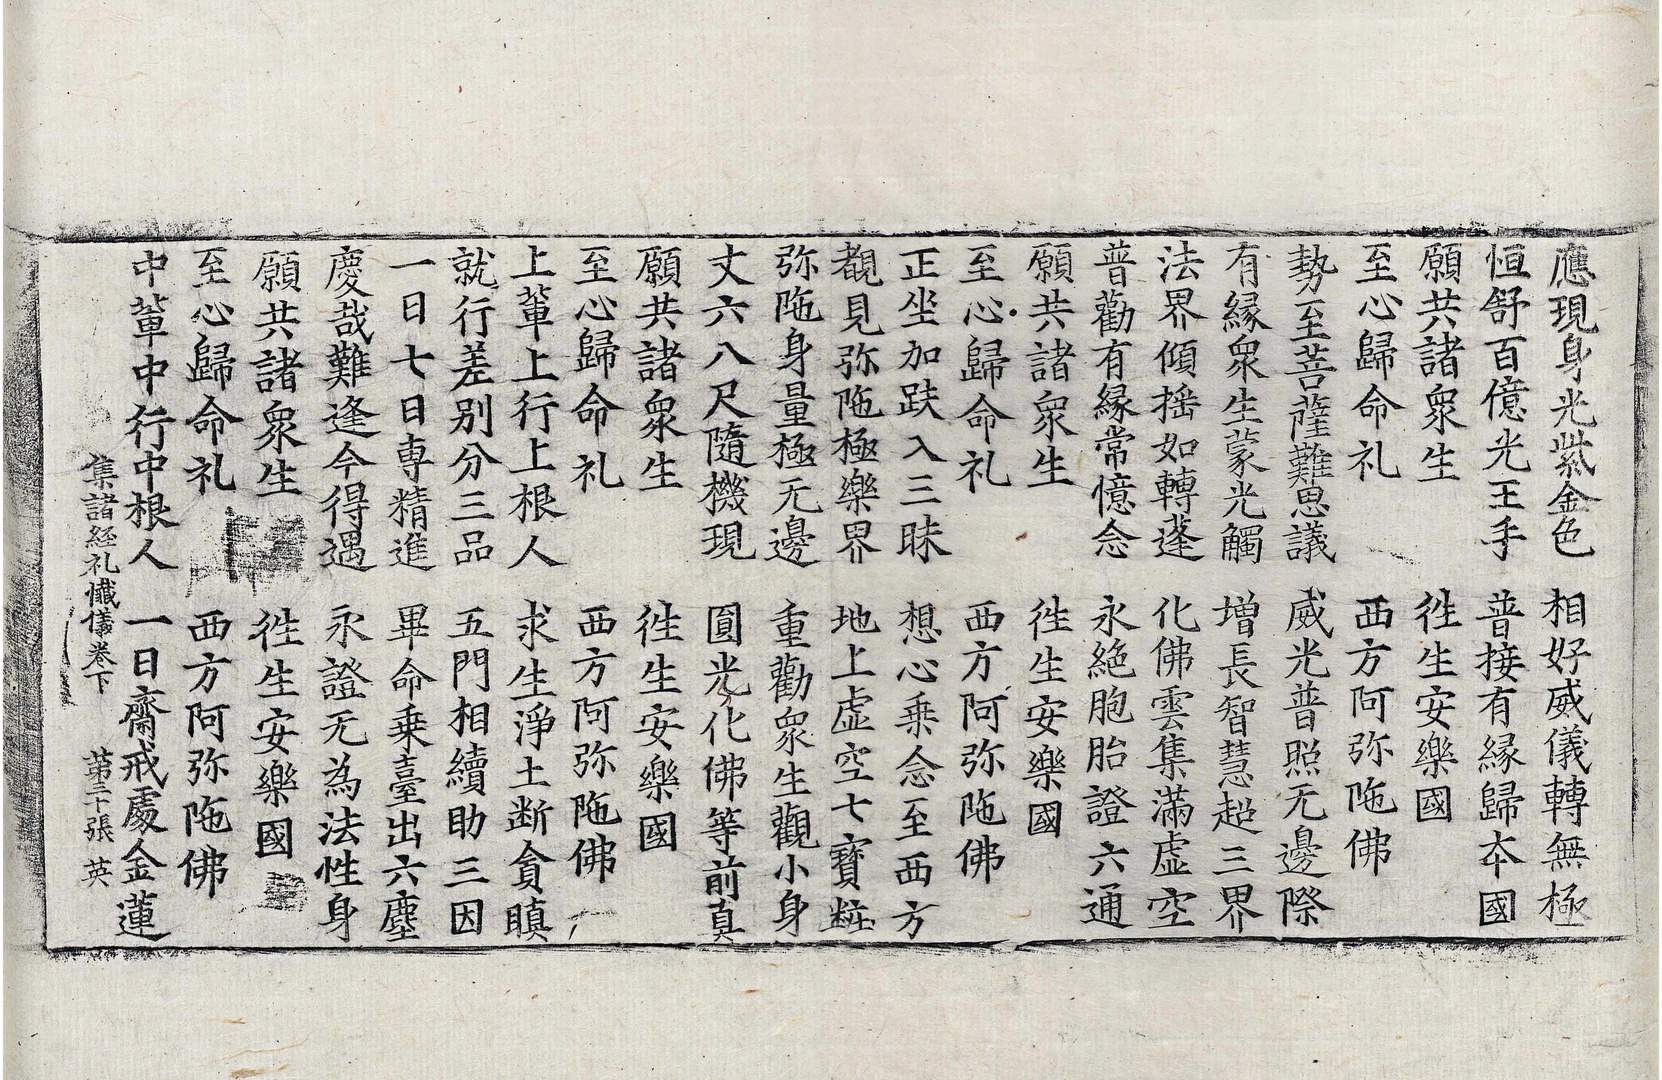 應現身光紫金色　相好威儀轉無極
恒舒百億光王手　普接有緣歸本國
願共諸衆生　徃生安樂國
至心歸命礼　西方阿弥陁佛
勢至菩薩難思議　威光普照无邊際
有緣衆生蒙光觸　增長智慧超三界
法界傾摇如轉蓬　化佛雲集滿虛空
普勸有緣常憶念　永絕胞胎證六通
願共諸衆生　徃生安樂國
至心歸命礼　西方阿弥陁佛
正坐加趺入三昧　想心乗念至西方
覩見弥陁極樂界　地上虛空七寶粧
弥陁身量極无邊　重勸衆生觀小身
丈六八尺隨機現　圓光化佛等前真
願共諸衆生　徃生安樂國
至心歸命礼　西方阿弥陁佛
上軰上行上根人　求生淨土断貪瞋
就行差別分三品　五門相續助三因
一日七日専精進　畢命乗臺出六塵
慶哉難逢今得遇　永證无為法性身
願共諸衆生　徃生安樂國
至心歸命礼　西方阿弥陁佛
中軰中行中根人　一日齋戒處金蓮
集諸經礼懺儀卷下　第三十張　英